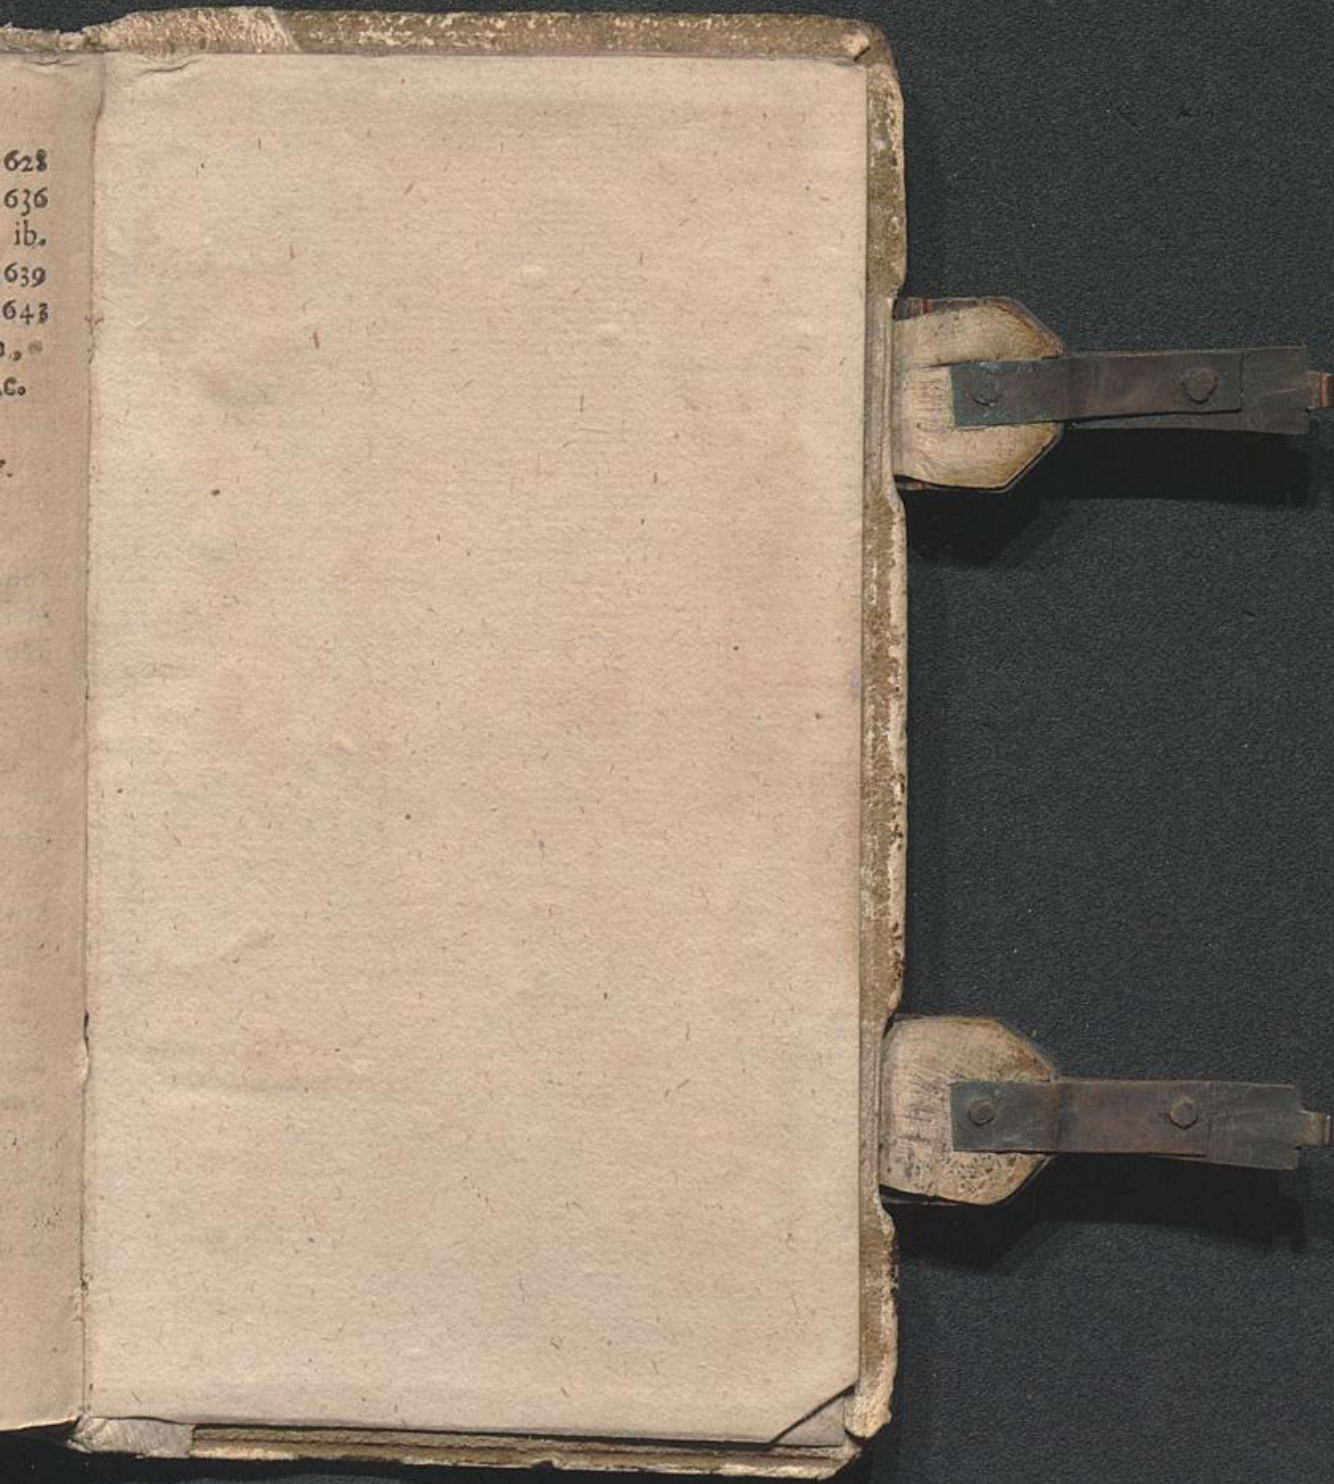 628
636
ib.
639
643
c.